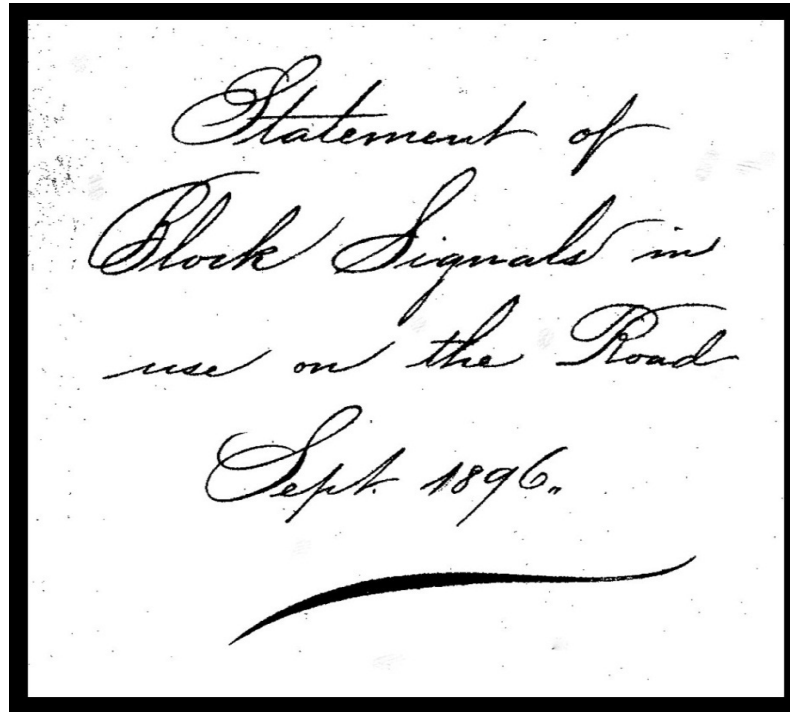 Statement of
Block Signals in
use on the Road
Sept. 1896.,